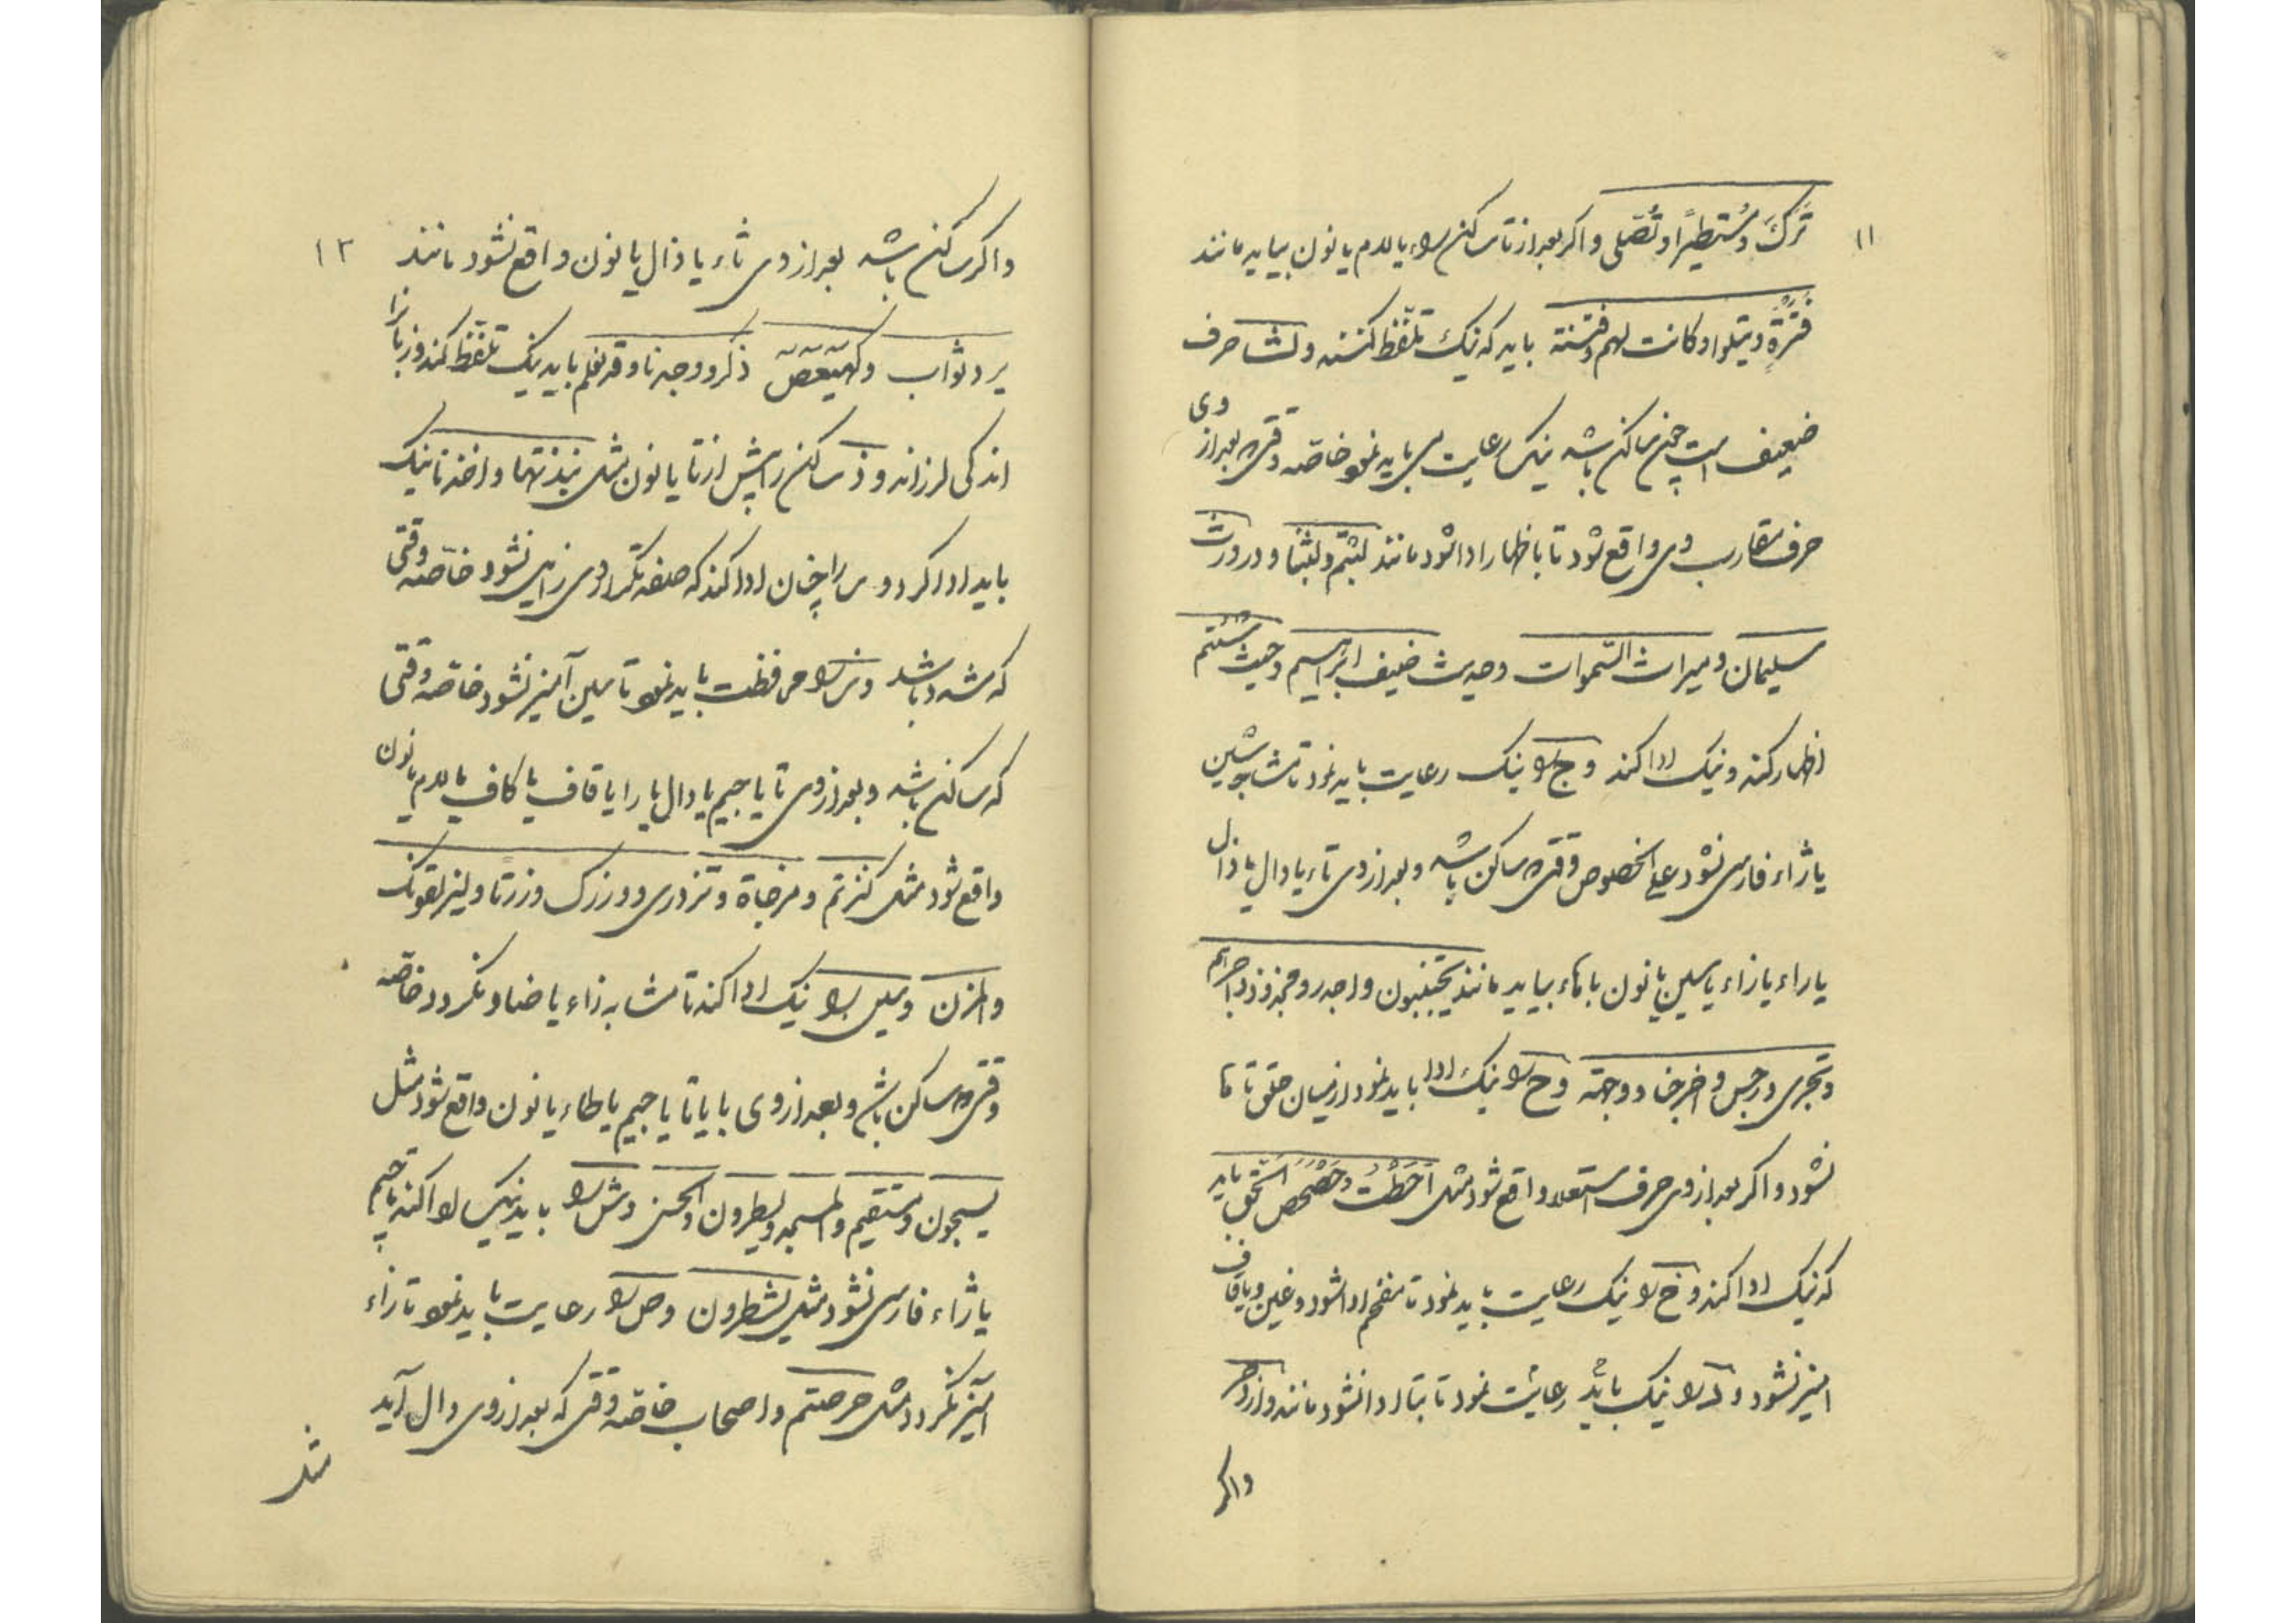 ۱۱
تَرَكَ و مُستطيرًا و تُصَلّى و اکر بعد از تا ساکن راء یا لام یا نون بیاید مانند
فَتْرَةٍ و یتلوا و کانت لهم و فتنة باید که نیک تلفّظ کنند و لشا حرف
ضعیف است چون ساکن باشد نیک رعایت می باید نمود خاصّه وقتی که بعد از وی
حرف مقارب وی واقع شود تا باظهار ادا شود مانند لبثتم و لبثنا و در ورث
سلیمان و میراث السّموات و حدیث ضیف ابراهیم و حیث شئتم
اظهار کند و نیک ادا کند و ج را نیک رعایت باید نمود تا مشابه شین
یا ژاء فارسی نشود علی الخصوص وقتی که ساکن باشد و بعد از وی تاء یا دال یا ذال
یا راء یا زاء یا سین یا نون یا هاء بیاید مانند یجتنبون و اجدر و مجذوذ و اجراهم
و تجزی و رجس و اخرجنا و وجهه و ح را نیک ادا باید نمود از میان حلق تا ها
نشود و اکر بعد از وی حرف استعلا واقع شود مثل اَحَطْتُ و حَصْحَصَ الحَقّ باید
که نیک ادا کند و خ را نیک رعایت باید نمود تا مفخم ادا شود و غین و یا قاف
امیز نشود و د را نیک باید رعایت نمود تا بتا ادا نشود مانند وازدجر
واکر
۱۲
واکر ساکن باشد بعد از وی ثاء یا ذال یا نون واقع نشود مانند
یرد ثواب و کهیعص ذکر و وجدنا و قد نعلم باید نیک تلفّظ کند و زبان را
اندکی لرزاند و ذ ساکن را پیش از تا یا نون مثل نبذتها و اخذنا نیک
باید ادا کرد و ر را چنان ادا کند که صفة تکرار وی زایل نشود خاصّه وقتی
که مشدد باشد و ز را محافظت باید نمود تا سین آمیز نشود خاصّه وقتی
که ساکن باشد و بعد از وی تا یا جیم یا دال یا را یا قاف یا کاف یا لام یا نون
واقع شود مثل کنزتم و مزجاة و تزدری و وزرک و رزقنا و لیزلقونک
والمزن و سین را نیک ادا کند تا مشابه زاء یا صاد نکردد خاصّه
وقتی که ساکن باشد و بعد از وی با یا تا یا جیم یا طاء یا نون واقع شود مثل
یسبحون و مستقیم و المسجد و یسطرون و الحسنی و ش را باید نیک ادا کند تا جیم
یا ژاء فارسی نشود مثل یشطرون و ص را رعایت باید نمود تا زاء
آمیز نکردد مثل حرصتم و اصحاب خاصّه وقتی که بعد از وی دال آید
مثل